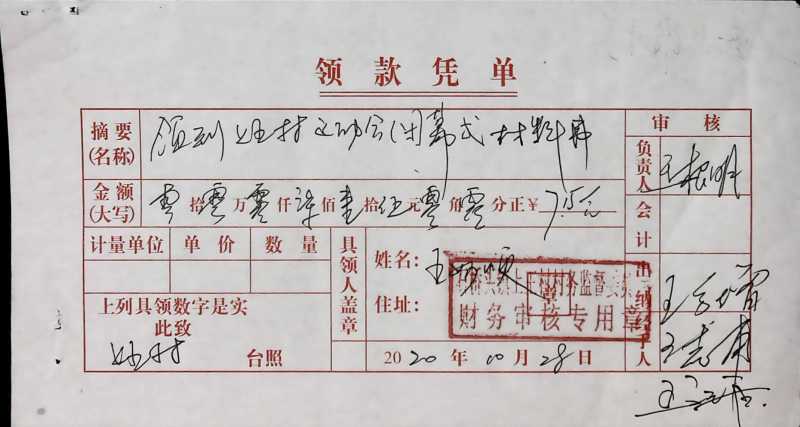 领款凭单
摘要(名称) 领到 村运动会(闭幕式材料费
金额(大写) 零拾零万零仟柒佰壹拾伍元零角零分正¥ 715元
审核
负责人 王根明
会计
出纳
经手人
计量单位 单价 数量
具领人盖章
姓名: 王
住址:
村务监督委
财务审核专用章
上列具领数字是实
此致
村 台照
2020年10月28日